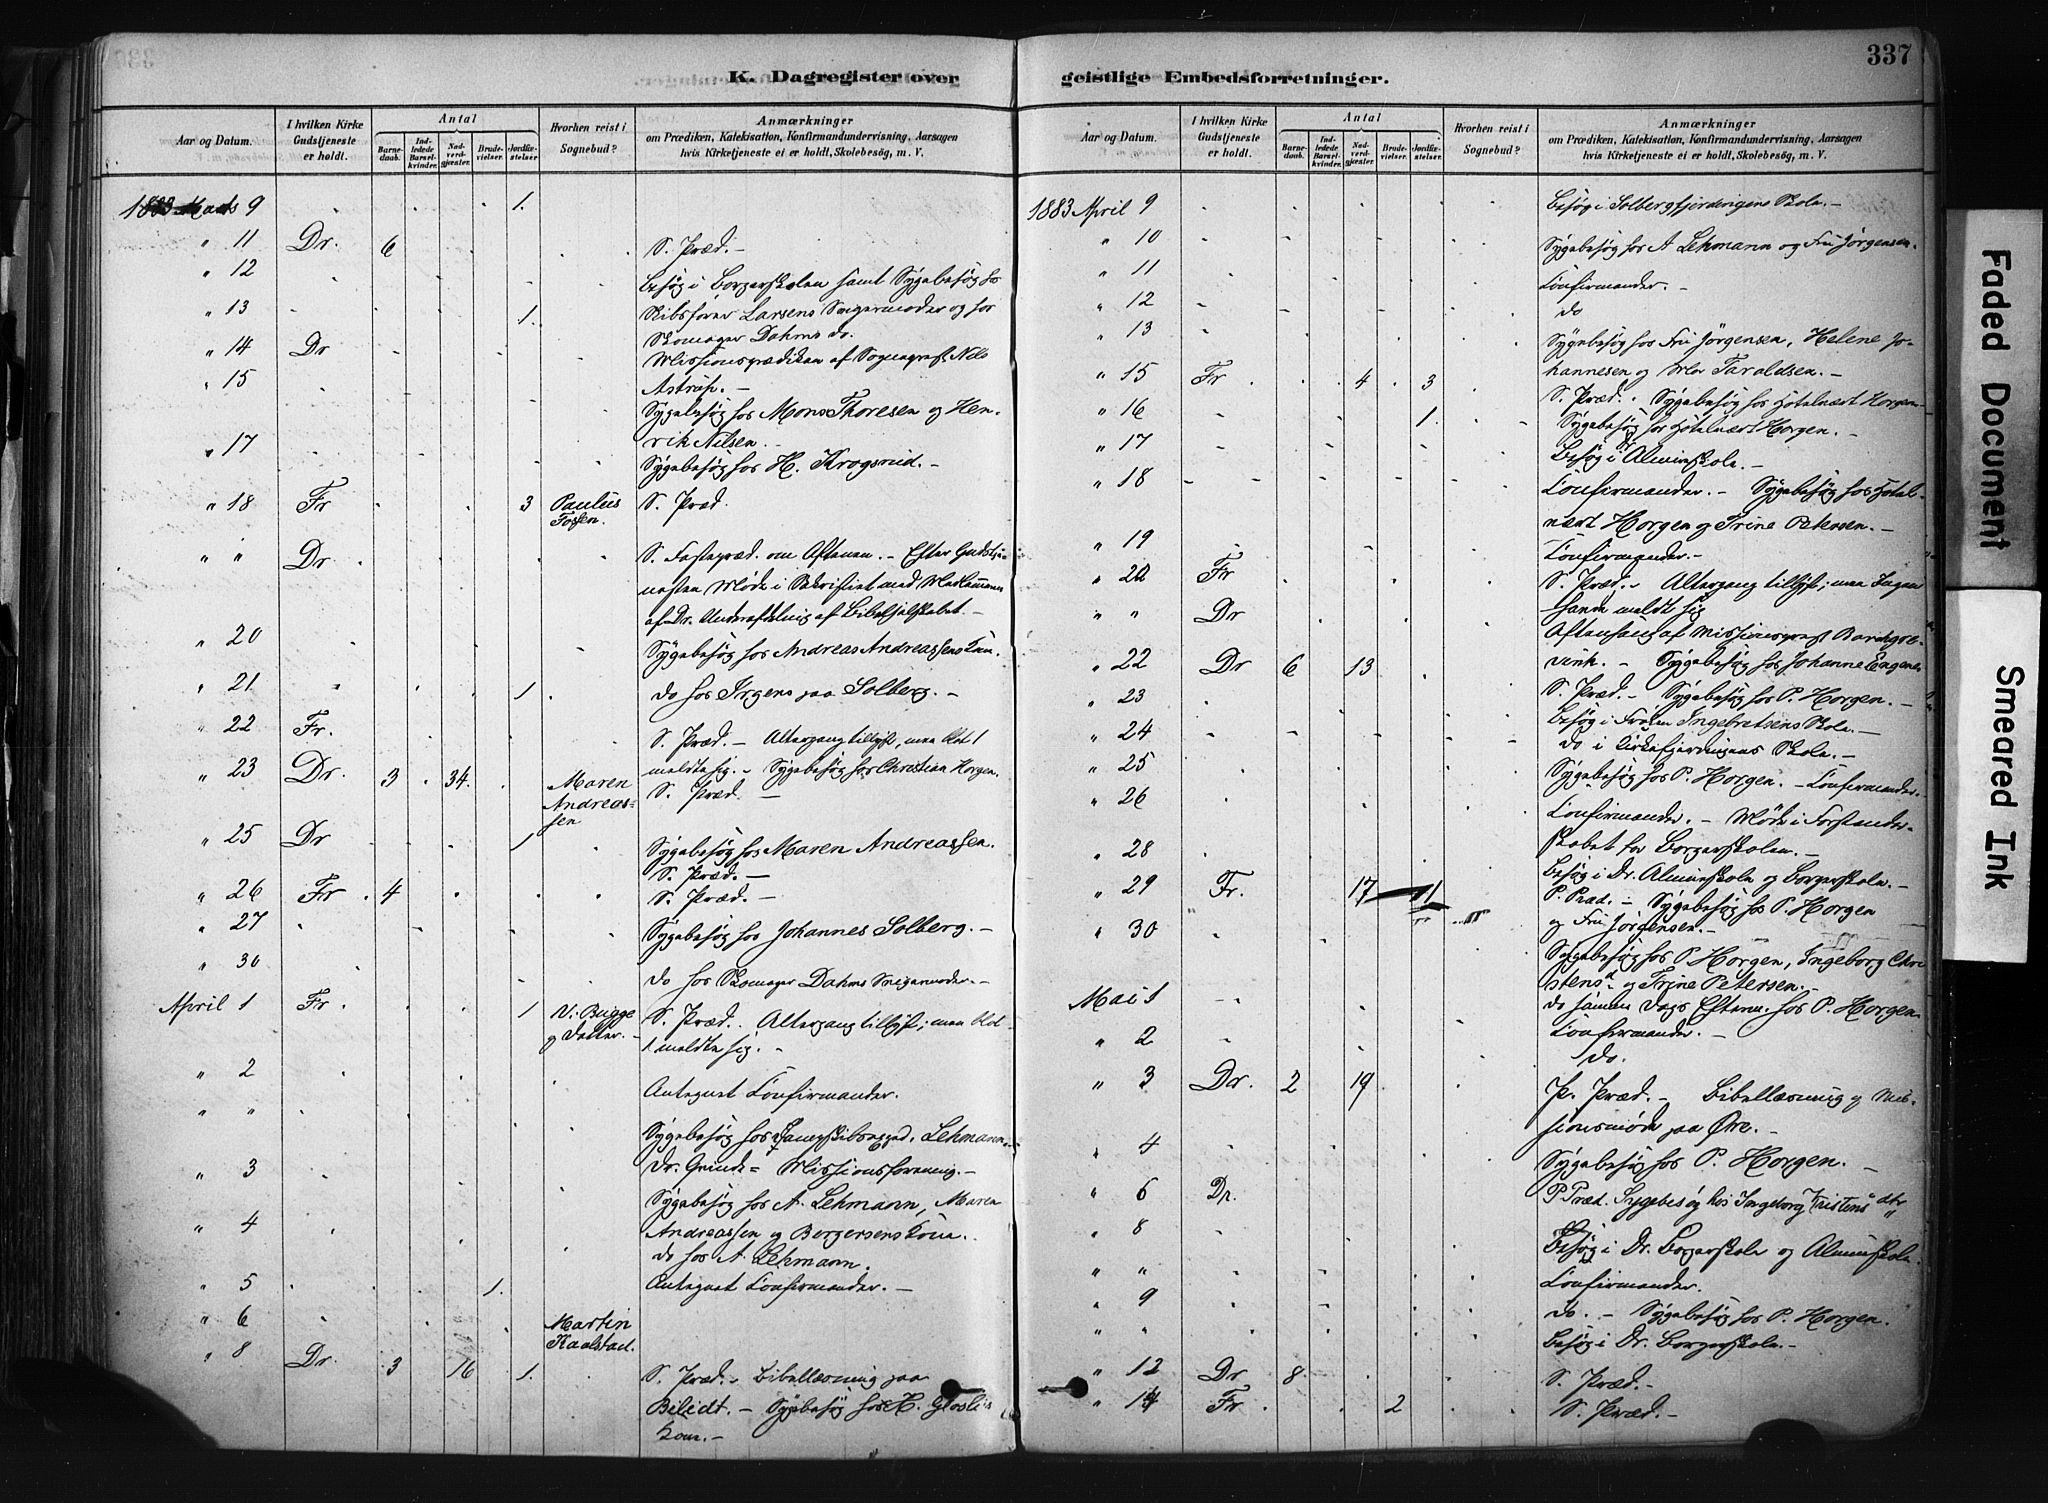 337
K. Dagregister over geistlige Embedsforretninger.
Aar og Datum.
I hvilken Kirke Gudstjeneste er holdt.
Antal
Barne-daab.
Ind-ledede Barsel-kvinder.
Nad-verd-gjæster.
Brude-vielser.
Jordfæ-stelser.
Hvorhen reist i Sognebud?
Anmærkninger
om Prædiken, Katekisation, Konfirmandundervisning, Aarsagen
hvis Kirketjeneste ei er holdt, Skolebesøg, m. V.
1883 Marts 9 1.
" 11 Dr. 6 S. Præd. -
" 12 Besøg i Borgerskolen samt Sygebesøg hos
" 13 1. Skibsfører Larsens Svigermoder og hos
Skomager Dahms do.
" 14 Dr Missionsprædiken af Sognepræst Nils
Astrup. -
" 15 Sygebesøg hos Mons Thoresen og Hen-
rik Nilsen. -
" 17 Sygebesøg hos H. Krogsrud. -
" 18 Fr 3 Paulus Fossen. S. Præd.
" " Dr S. Fastepræd. om Aftenen. - Efter Gudstje-
nesten Møde i Sakristiet med Medlemmer
af Dr. Underafdeling af Bibelselskabet -
" 20 Sygebesøg hos Andreas Andreassens Kone.
" 21 1 do hos Irgens paa Solberg. -
" 22 Fr. S. Præd. - Altergang tillyst, men blot 1
meldte sig. - Sygebesøg hos Christian Horgen.
" 23 Dr. 3 34. Maren Andreas-sen S. Præd. -
" 25 Dr 1 Sygebesøg hos Maren Andreassen.
S. Præd. -
" 26 Fr 4 S. Præd. -
" 27 Sygebesøg hos Johannes Solberg. -
" 30 do hos Skomager Dahms Svigermoder. -
April 1 Fr 1 V. Bugge og Datter. - S. Præd. . Altergang tillyst; men blot
1 meldte sig. -
" 2 Antegnet Confirmander.
" " Sygebesøg hos Dampskibsexped. Lehmann.
Do. Grinde = Missionsforening. -
" 3 Sygebesøg hos A. Lehmann, Maren
Andreassen og Borgersens Kone.
" 4 do hos A. Lehmann.
" 5 1. Antegnet Confirmander. -
" 6 Martin Kaalstad.
" 8 Dr. 3 16 1. S. Præd. - Bibellæsning paa
Bilidt. - Sygebesøg hos H. Gloslis
Kone. -
Aar og Datum.
I hvilken Kirke Gudstjeneste er holdt.
Antal
Barne-daab.
Ind-ledede Barsel-kvinder.
Nad-verd-gjæster.
Brude-vielser.
Jordfæ-stelser.
Hvorhen reist i Sognebud?
Anmærkninger
om Prædiken, Katekisation, Konfirmandundervisning, Aarsagen
hvis Kirketjeneste ei er holdt, Skolebesøg, m. V.
1883 April 9 Besøg i Solbergfjerdingens Skole. -
" 10 Sygebesøg hos A Lehmann og Fru Jørgensen.
" 11 Confirmander. -
" 12 do
" 13 Sygebesøg hos Fru Jørgensen, Helene Jo-
hannesen og Mor Taraldsen. -
" 15 Fr 4 3 S. Præd. . Sygebesøg hos Hotelvært Horgen
" 16 1. Sygebesøg hos Hotelvært Horgen. -
" 17 Besøg i Almueskole. -
" 18 Confirmander. - Sygebesøg hos Hotel-
vært Horgen og Trine Petersen. -
" 19 Confirmander. -
" 22 Fr S. Præd. - Altergang tillyst; men Ingen
havde meldt sig
" " Dr Aftensang af Missionspræst
" 22 Dr 6 13 - Sygebesøg hos Johanne Engene
" 23 S. Præd. - Sygebesøg hos P. Horgen. -
Besøg i Frøken Ingebretsens Skole. -
" 24 do i Kirkefjerdingens Skole. -
" 25 Sygebesøg hos P. Horgen. - Confirmander.
" 26 Confirmander. - Møde i Forstander-
skabet for Borgerskolen. -
" 28 Besøg i Dr. Almueskole og Borgerskole. -
" 29 Fr. 17 1 P. Præd. - Sygebesøg hos P. Horgen
og Fru Jørgensen. -
" 30 Sygebesøg hos P Horgen, Ingeborg Chri
stens d og Trine Petersen. -
Mai 1 do samme Dags Efterm. hos P. Horgen
" 2 Confirmander. -
do.
" 3 Dr. 2 19 P. Præd. - Bibellæsning og Mis-
sionsmøde paa Øre. -
" 4 Sygebesøg hos P. Horgen. -
" 6 Dr. P Præd. Sygebesøg hos Ingeborg Kristens dtr
" 8 Besøg i Dr. Borgerskole og Almueskole.
" " Confirmander.
" 9 do. - Sygebesøg hos P. Horgen.
" " Besøg i Dr. Borgerskole. -
" 12 Dr 8 S. Præd. -
" 14 Fr 2 S. Præd. -
Faded Document
Smeared Ink